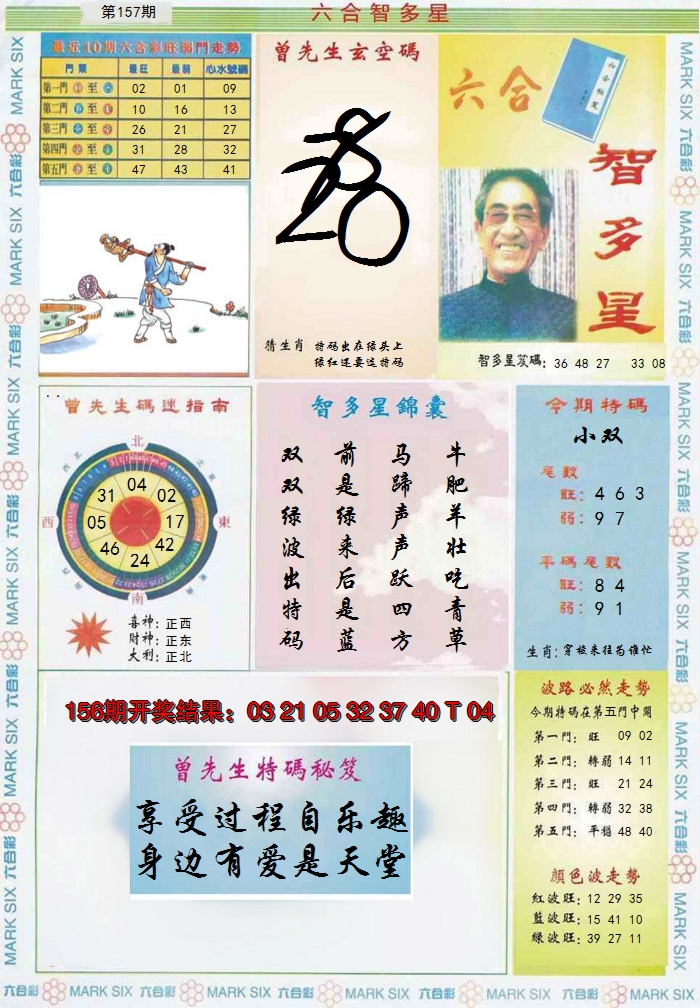 第157期
六合智多星
最近10期六合彩旺弱門走勢
門類 最旺 最弱 心水號碼
第一門 至 02 01 09
第二門 至 10 16 13
第三門 至 26 21 27
第四門 至 31 28 32
第五門 至 47 43 41
曾先生玄空碼
猜生肖 特码出在绿头上
绿红还要这特码
六合
智多星
智多星笈碼: 36 48 27 33 08
曾先生碼迷指南
北
西 東
南
04
02
17
42
24
46
05
31
喜神: 正西
财神: 正东
大利: 正北
智多星錦囊
牛肥羊壮吃青草
马蹄声声跃四方
前是绿来后是蓝
双双绿波出特码
今期特碼
小双
尾數
旺: 4 6 3
弱: 9 7
平碼尾數
旺: 8 4
弱: 9 1
生肖: 穿梭来往为谁忙
156期开奖结果: 03 21 05 32 37 40 T 04
曾先生特碼秘笈
享受过程自乐趣
身边有爱是天堂
波路必然走勢
今期特碼在第五門中開
第一門: 旺 09 02
第二門: 轉弱 14 11
第三門: 旺 21 24
第四門: 轉弱 32 38
第五門: 平穩 48 40
顏色波走勢
紅波旺: 12 29 35
藍波旺: 15 41 10
綠波旺: 39 27 11
MARK SIX 六合彩